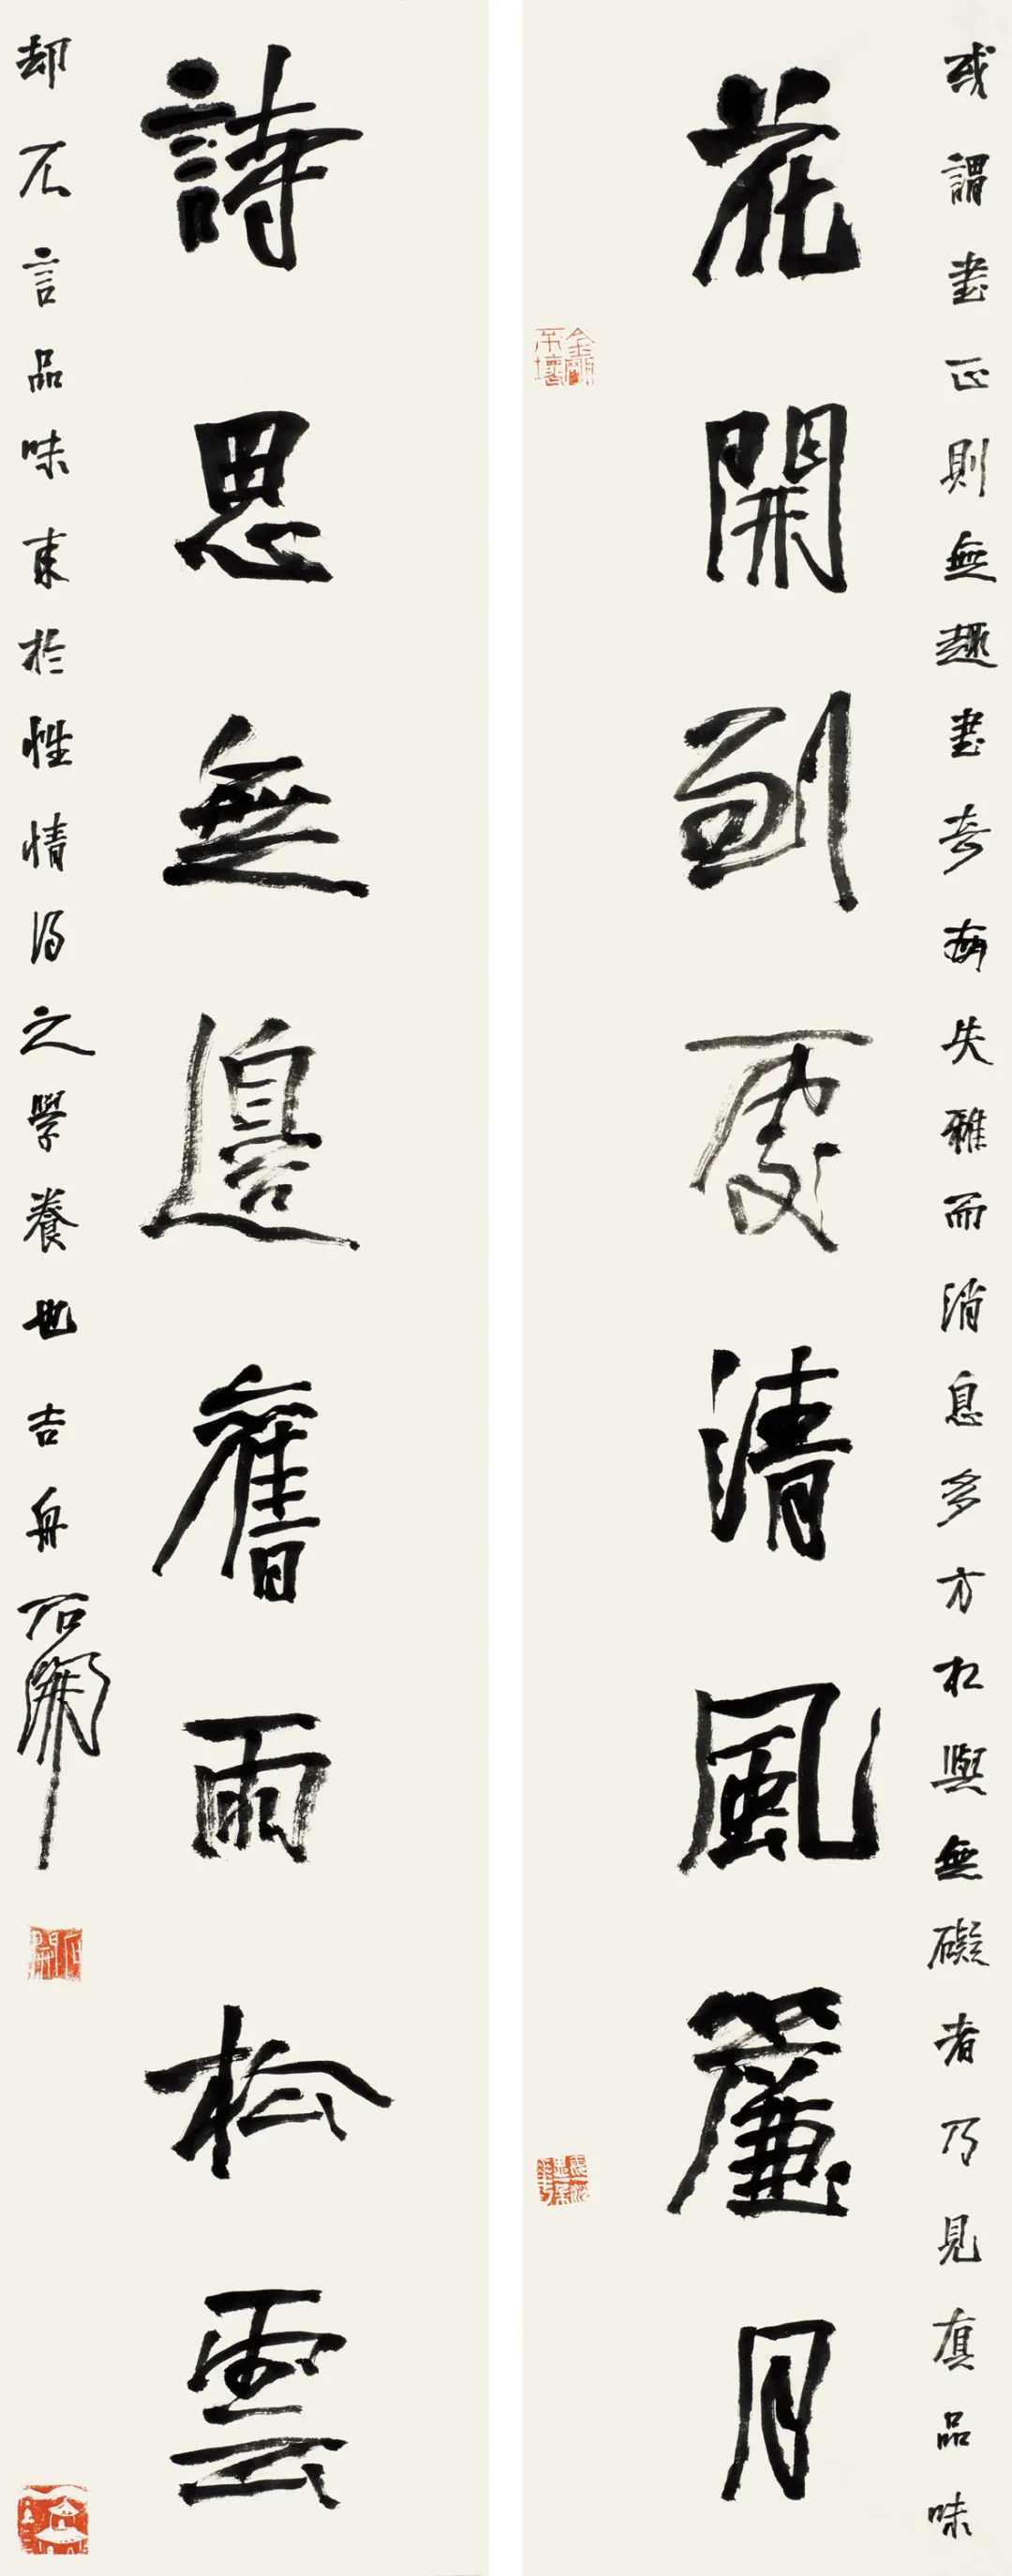 或謂書正則無趣書奇失雅而消息多方相與無礙者乃見真品味
花開到處清風簾月
金剛不壞
詩思無邊舊雨松雲
却不言品味東於性情得之學養也吉舟石開
石開